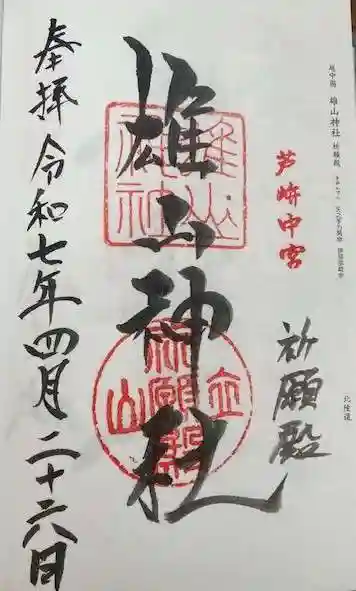 越中国 雄山神社 祈願殿
北陸道
芦峅中宮
祈願殿
雄山神社
雄山神社
立山
祈願殿
奉拝 令和七年四月二十六日